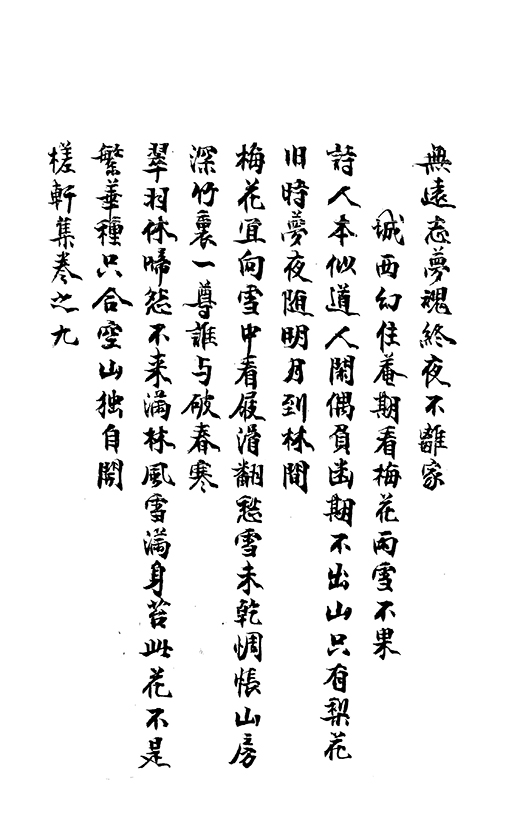 無遠志夢魂終夜不離家
城西幻住菴期看梅花雨雪不果
詩人本似道人閑偶負幽期不出山只有梨花
旧時夢夜随明月到林間
梅花宜向雪中看屐滑翻愁雪未乾惆悵山房
深竹裏一尊誰与破春寒
翠羽休啼怨不来満林風雪満身苔此花不是
繁華種只合空山独自開
槎軒集巻之九